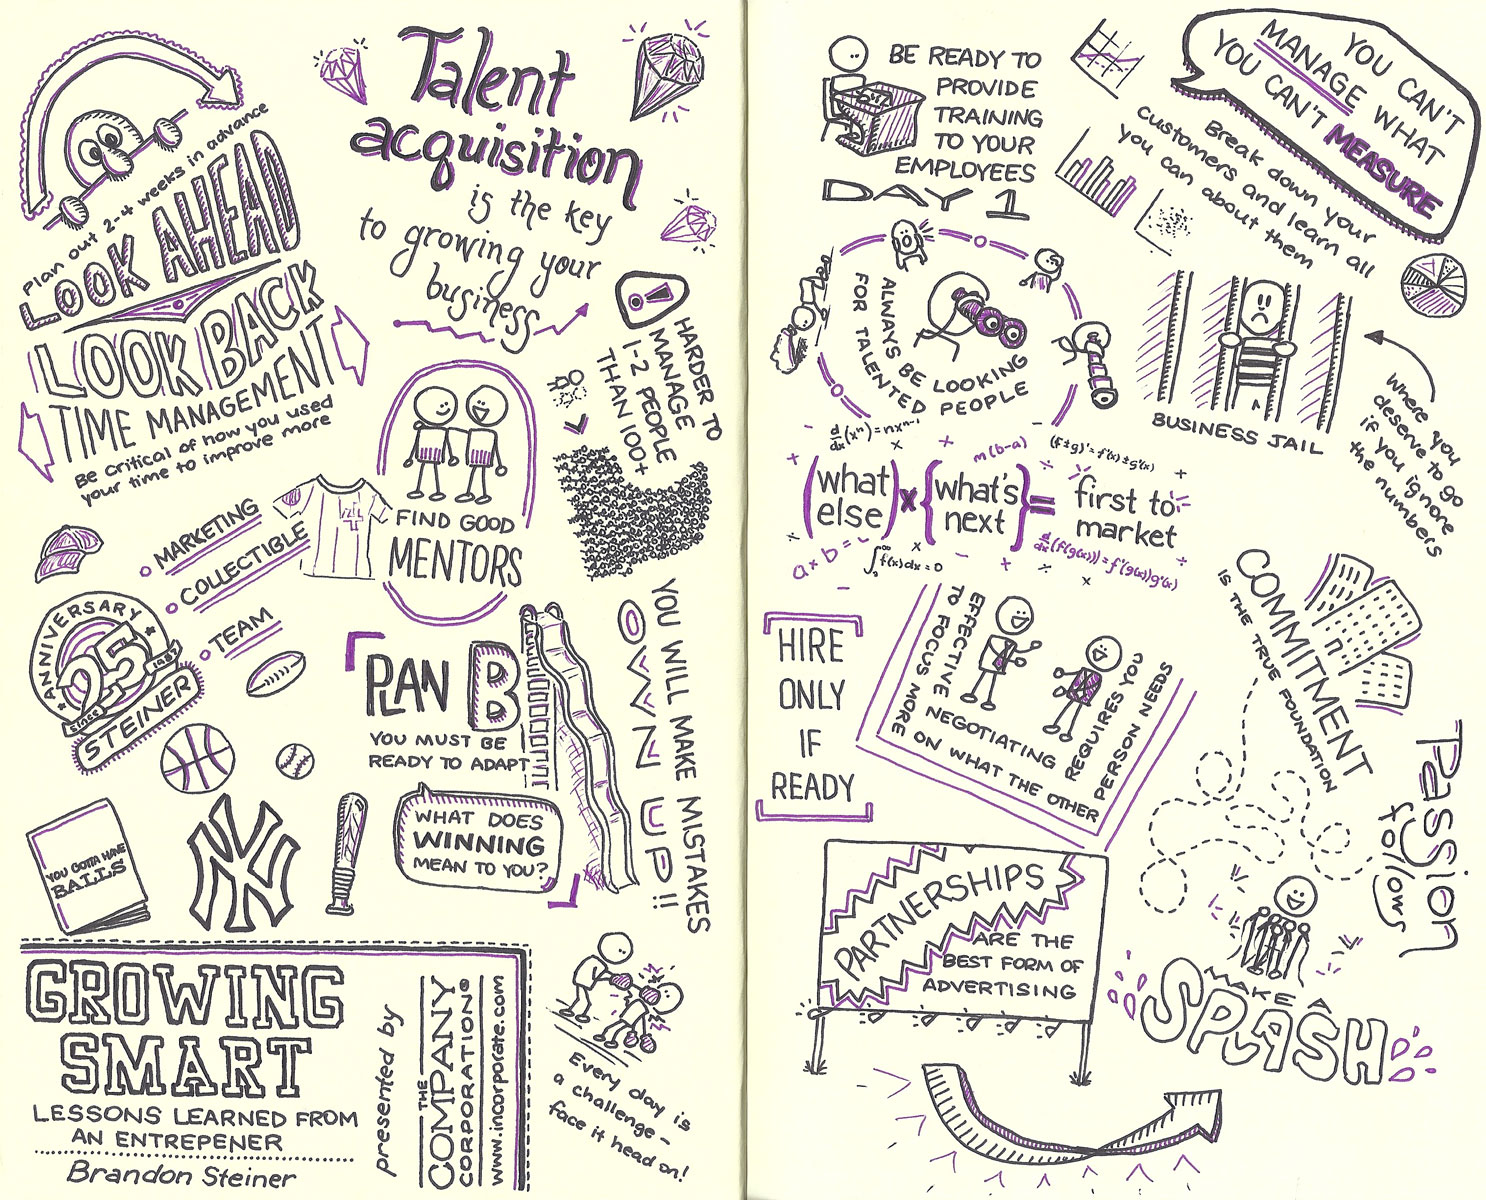 Plan out 2-4 weeks in advance
LOOK AHEAD
LOOK BACK
TIME MANAGEMENT
Be critical of how you used
your time to improve more
Talent
acquisition
is the key
to growing your
business
HARDER TO
MANAGE
1-2 PEOPLE
THAN 100+
FIND GOOD
MENTORS
MARKETING
COLLECTIBLE
TEAM
ANNIVERSARY
25
since 1987
STEINER
YOU GOTTA HAVE
BALLS
NY
PLAN B
YOU MUST BE
READY TO ADAPT
WHAT DOES
WINNING
MEAN TO YOU?
YOU WILL MAKE MISTAKES
OWN UP!!
GROWING
SMART
LESSONS LEARNED FROM
AN ENTREPENER
Brandon Steiner
presented by
THE
COMPANY
CORPORATION®
www.incorporate.com
Every day is
a challenge -
face it head on!
BE READY TO
PROVIDE
TRAINING
TO YOUR
EMPLOYEES
DAY 1
YOU CAN'T
MANAGE WHAT
YOU CAN'T MEASURE
Break down your
customers and learn all
you can about them
ALWAYS BE LOOKING
FOR TALENTED PEOPLE
BUSINESS JAIL
Where you
deserve to go
if you ignore
the numbers
d/dx(xⁿ)=nxⁿ⁻¹
m(b-a)
(f±g)'=f'(x)±g'(x)
(what else) x {what's next} = first to market
a×b=
∫f(x)dx=0
d/dx(f(g(x)))=f'(g(x))g'(x)
HIRE
ONLY
IF
READY
EFFECTIVE NEGOTIATING REQUIRES YOU
TO FOCUS MORE ON WHAT THE OTHER PERSON NEEDS
COMMITMENT
IS THE TRUE FOUNDATION
Passion
follows
PARTNERSHIPS
ARE THE
BEST FORM OF
ADVERTISING
MAKE A
SPLASH